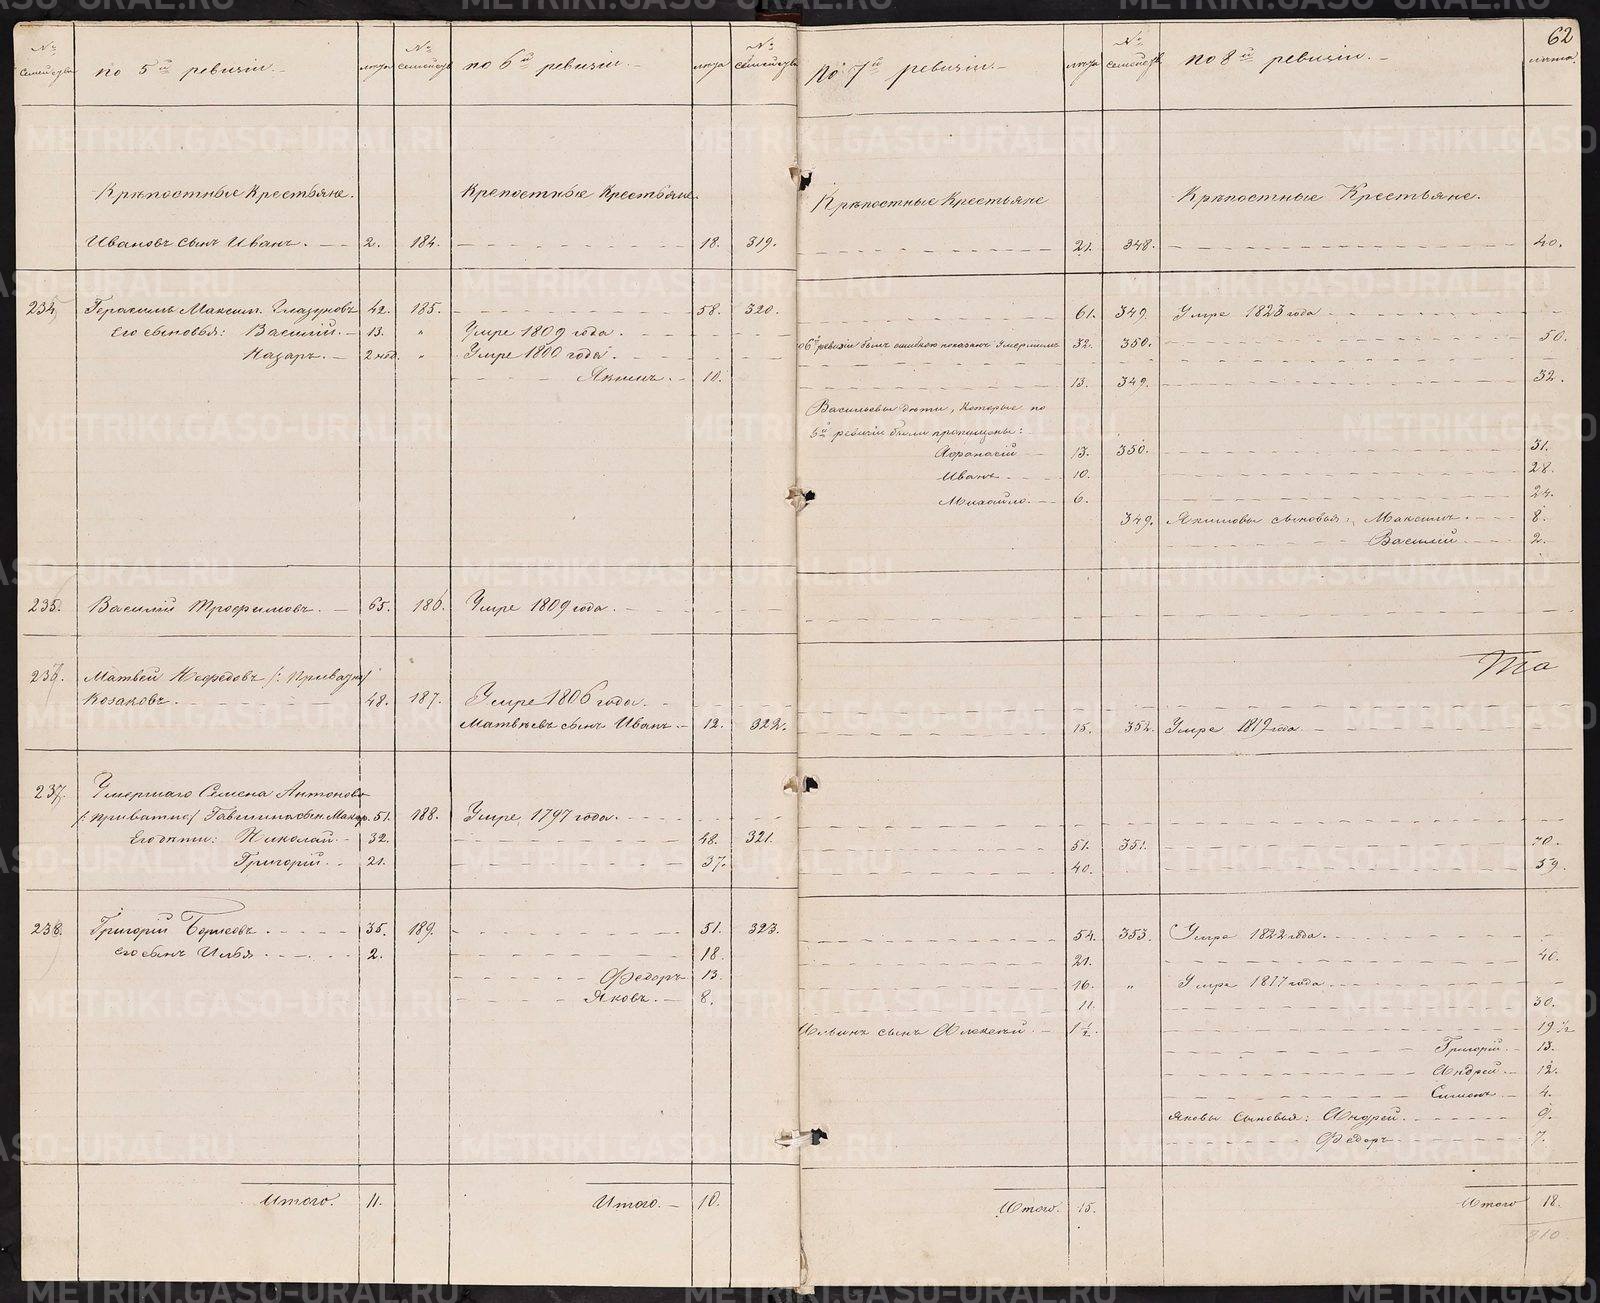 № семейства по 5й ревизіи. лѣта № семейств по 6й ревизіи. лѣта № семейства
Крѣпостные Крестьяне. Крепостные Крестьяне.
Ивановъ сынъ Иванъ. 2. 184. 18. 319.
234. Герасимъ Максим. Глазуновъ 42. 185. 58. 320.
Его сыновья: Василий. 13. " Умре 1809 года.
Назаръ. 2 нед. " Умре 1800 года.
Якимъ. 10.
235. Василій Трофимовъ. 65. 186. Умре 1809 года.
236. Матвей Нефедовъ
Козаковъ. 48. 187. Умре 1806 года.
Матвѣевъ сынъ Иванъ 12. 322.
237. Умершаго Семена Антонова
51. 188. Умре 1797 года.
Его дѣти: Николай 32. 48. 321.
Григорій. 21. 37.
238. Григорій Борисовъ 35. 189. 51. 323.
Его сынъ Илья 2. 18.
Федоръ 13.
Яковъ. 8.
Итого. 11. Итого. 10.
62
По 7й ревизіи. лѣта № семейств. по 8й ревизіи. лѣта.
Крѣпостные Крестьяне Крѣпостные Крестьяне.
21. 348. 40.
61. 349. Умре 1823 года
по 6й ревизіи былъ ошибкою показанъ умершимъ 32. 350. 50.
13. 349. 32.
Васильевы дѣти, которые по
5й ревизіи были пропущены:
Афанасій 13. 350. 31.
Иванъ 10. 28.
Михайло. 6. 24.
349. Якимовы сыновья: Максимъ. 8.
Василій 2.
15. 352. Умре 1819 года
51. 351. 70.
40. 59.
54. 353. Умре 1822 года.
21. 40.
16. " Умре 1817 года.
11. 30.
Ильинъ сынъ Алексей 1 1/2. 19 1/2
Григорій 13.
Андрей 12.
Симонъ 4.
Яковы сыновья: Андрей. 9.
Федоръ 7.
Итого. 15. Итого 18.
METRIKI.GASO-URAL.RU